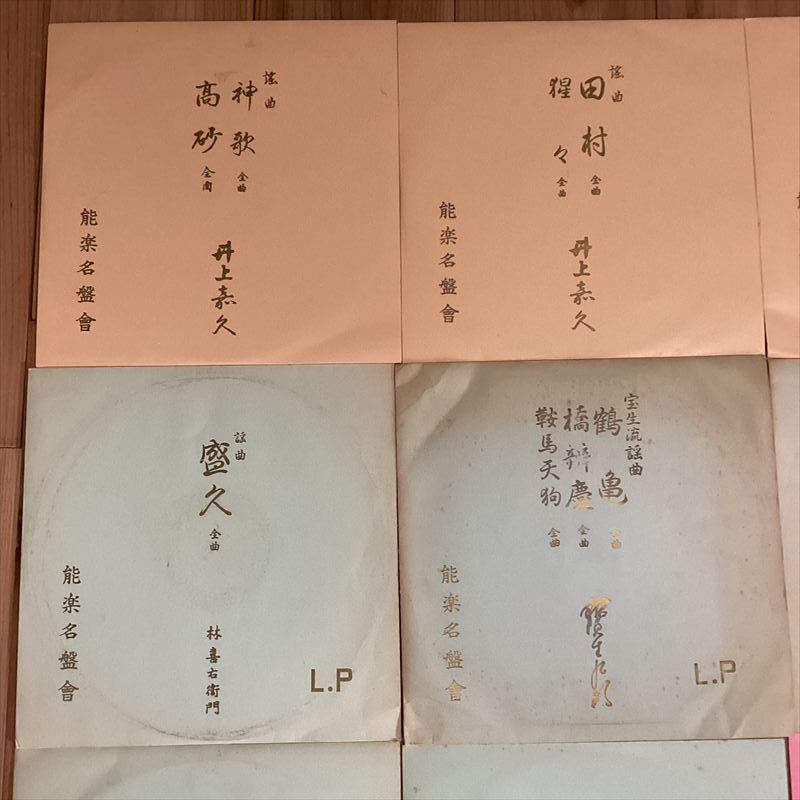 謡曲
神歌 全曲
高砂 全曲
井上嘉久
能楽名盤會
謡曲
田村 全曲
猩々 全曲
井上嘉久
能楽名盤會
謡曲
盛久 全曲
林喜右衛門
能楽名盤會
L.P
宝生流謡曲
鶴亀 全曲
橋辨慶 全曲
鞍馬天狗 全曲
能楽名盤會
L.P